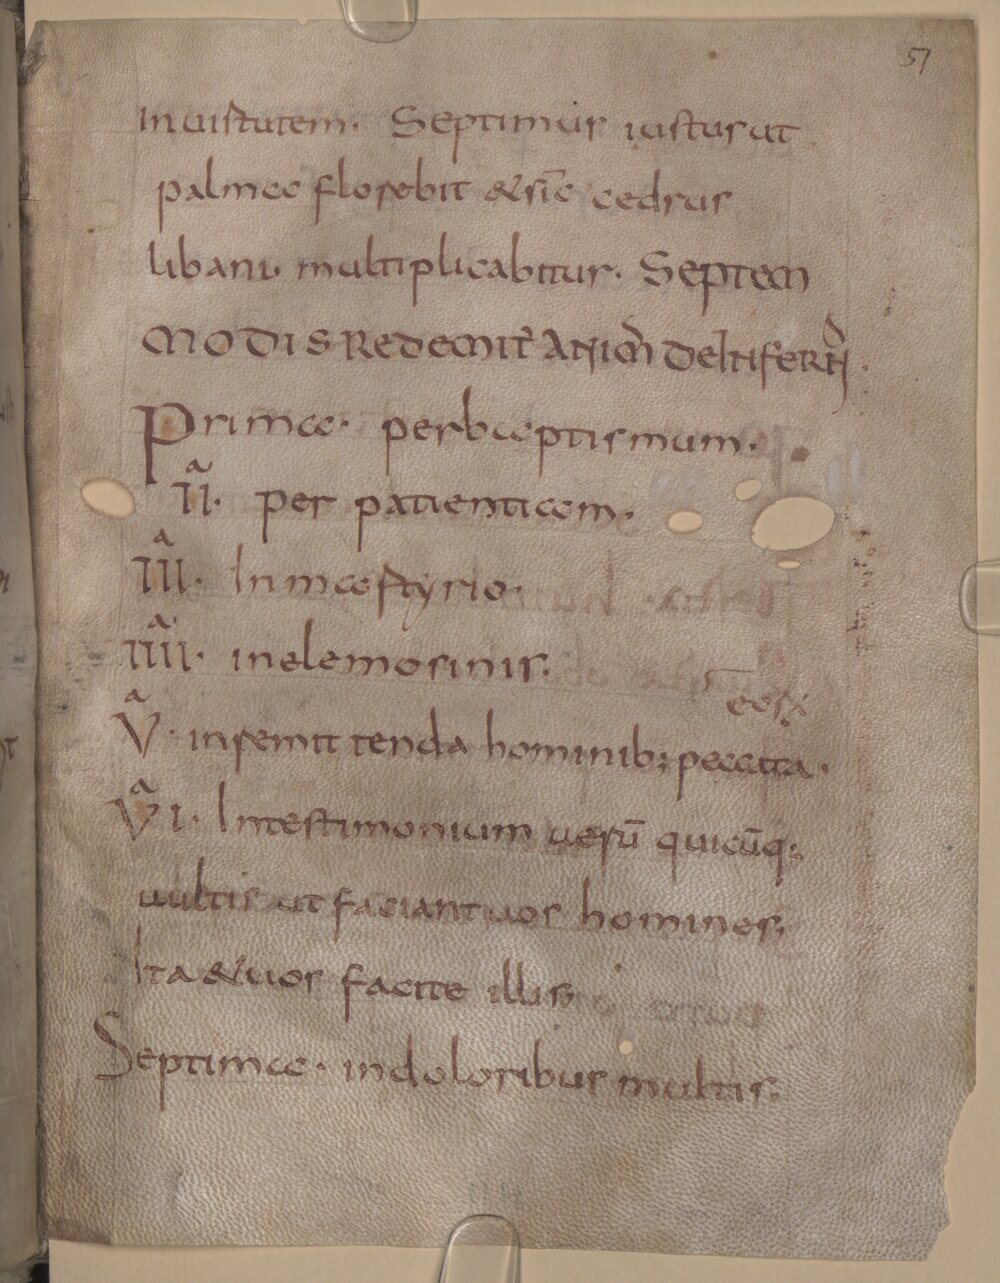 51
In uirtutem. Septimus iustus ut
palma florebit & sic̄ cedrus
libani. multiplicabitur. Septem
MODIS REDEMIT̄ ANIM̄
Prima. per baptismum.
II. per patientiam.
III. In martyrio.
IIII. in elemosinis.
V. in remittenda hominib; peccata.
VI. In testimonium uerū quicūq;
uultis ut faciant uos homines.
Ita & uos facite illis
Septima. in doloribus multis.